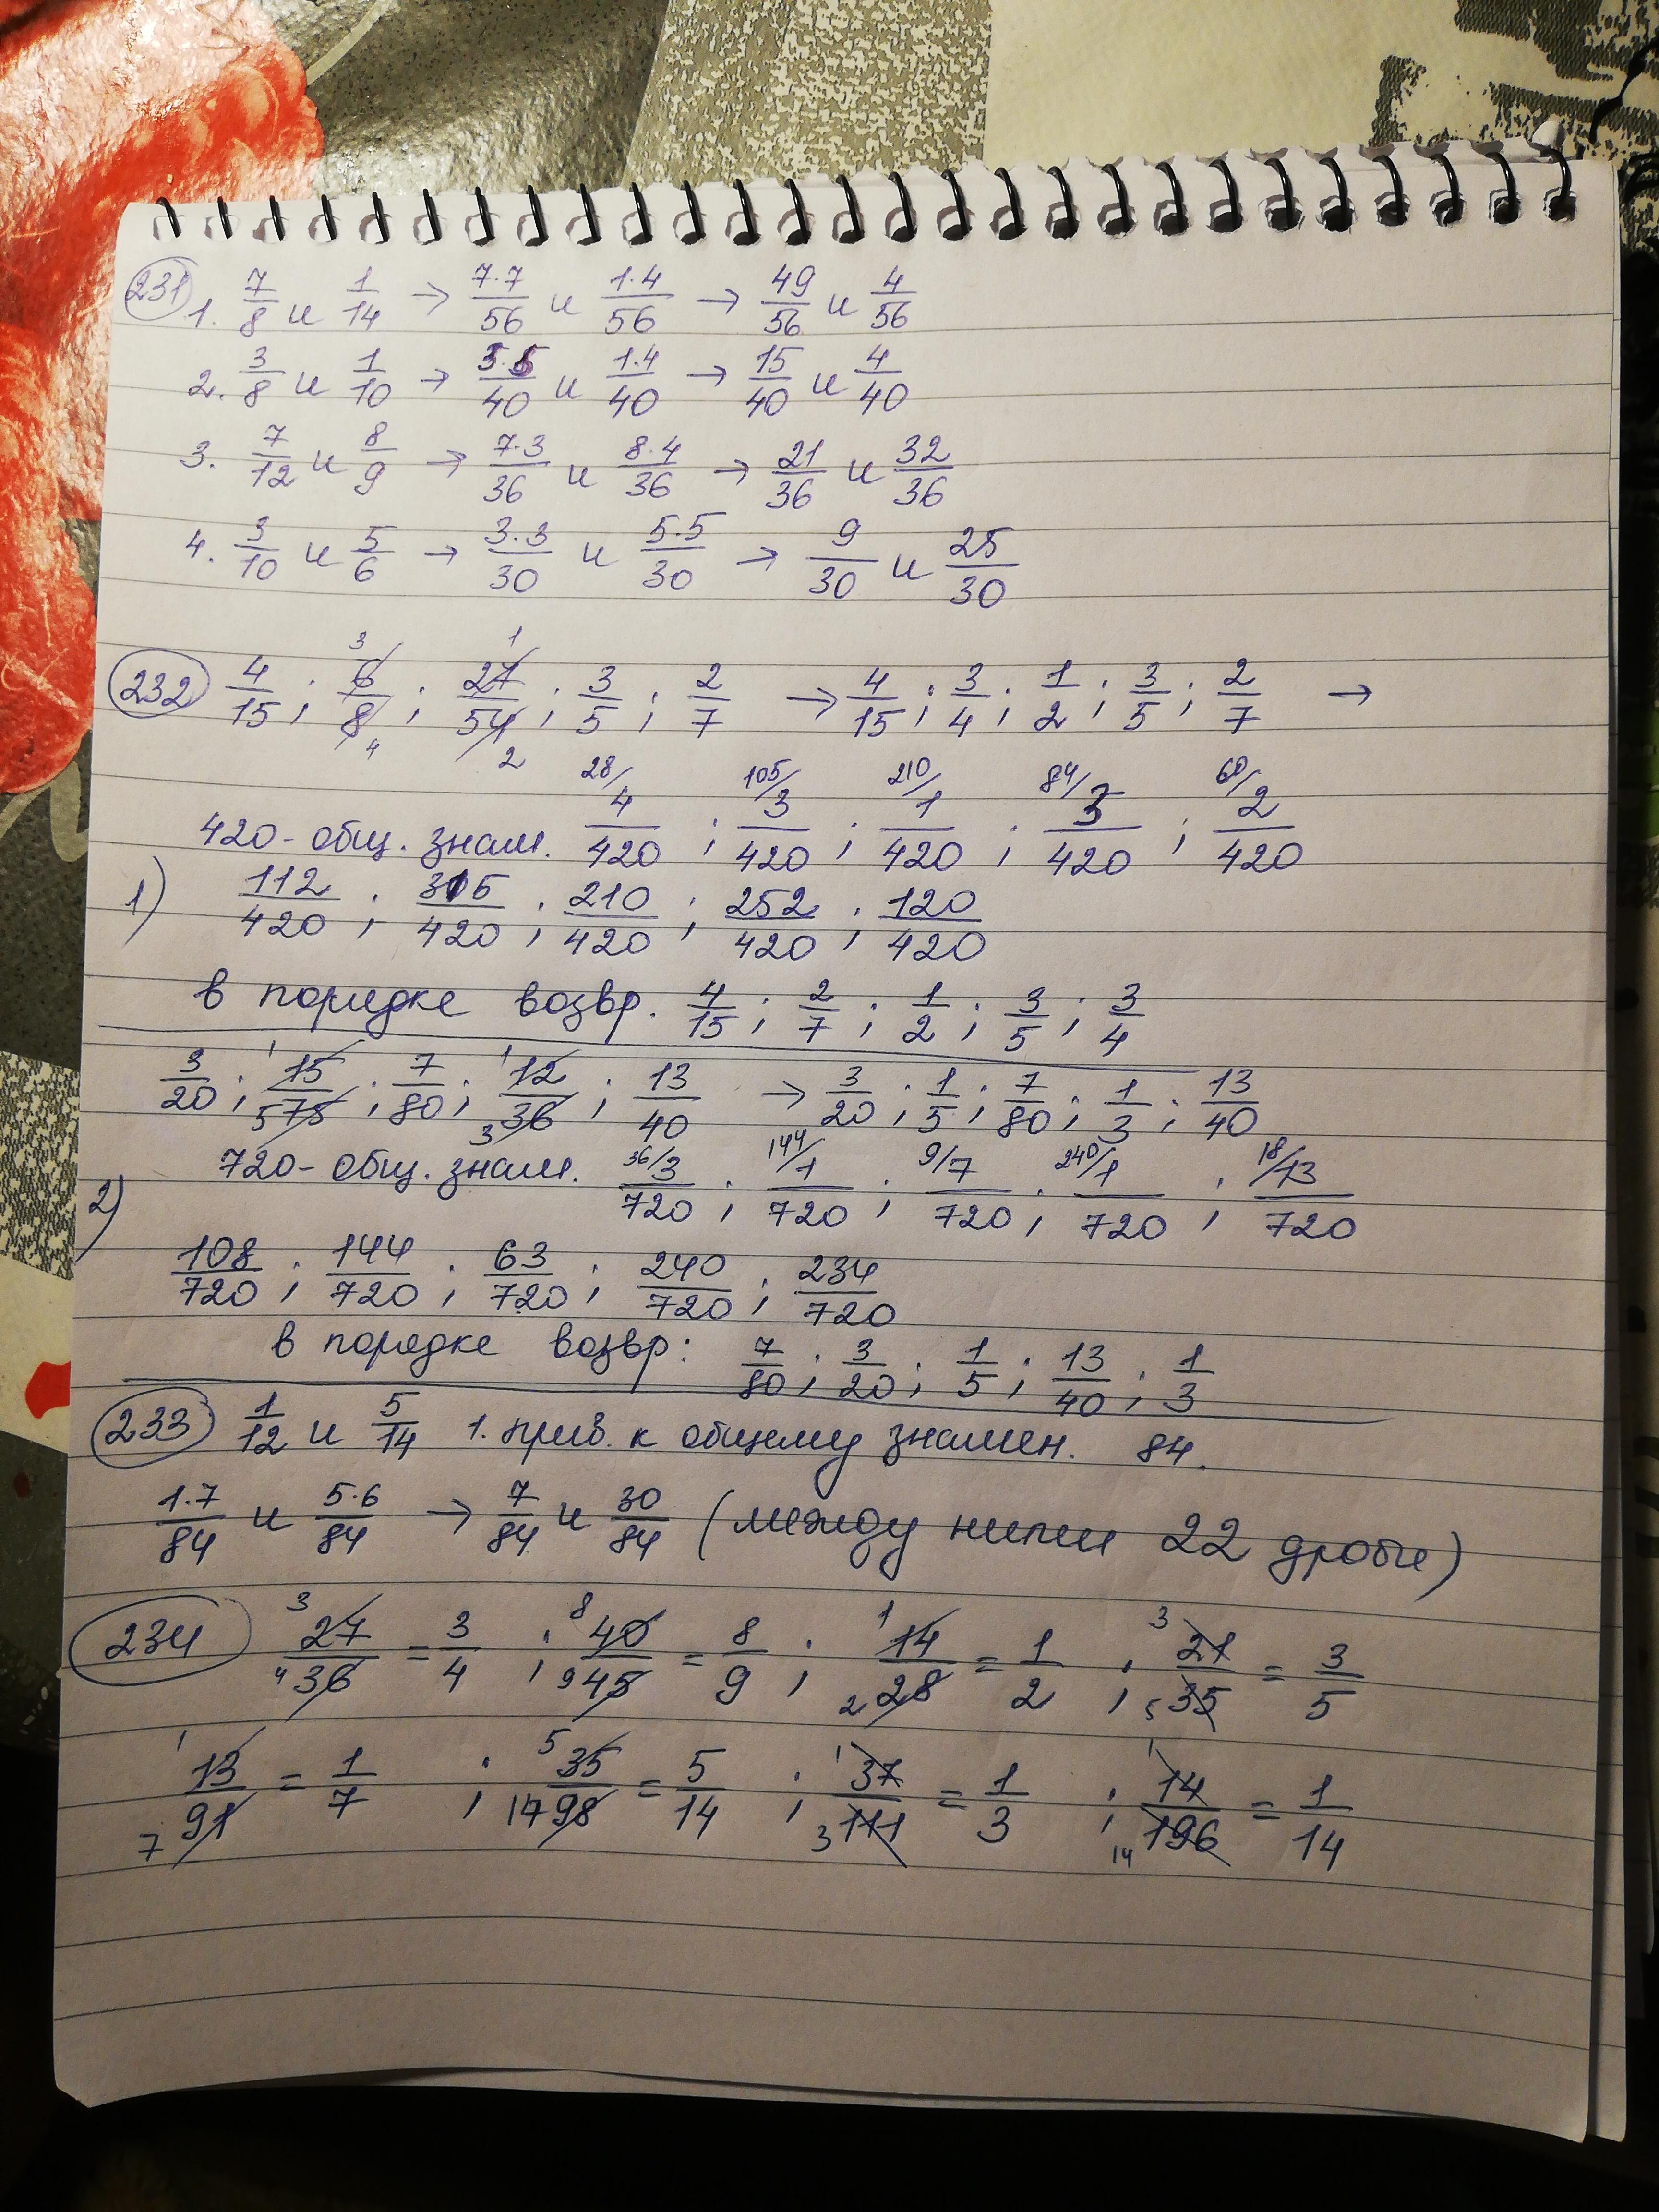 231 1. 7/8 и 1/14 → 7·7/56 и 1·4/56 → 49/56 и 4/56
2. 3/8 и 1/10 → 3·5/40 и 1·4/40 → 15/40 и 4/40
3. 7/12 и 8/9 → 7·3/36 и 8·4/36 → 21/36 и 32/36
4. 3/10 и 5/6 → 3·3/30 и 5·5/30 → 9/30 и 25/30
3 1
232 4/15 ; 6/8 ; 27/54 ; 3/5 ; 2/7 → 4/15 ; 3/4 ; 1/2 ; 3/5 ; 2/7 →
4 2
28/ 105/ 210/ 84/ 60/
420 - общ. знам. 4/420 ; 3/420 ; 1/420 ; 3/420 ; 2/420
1) 112/420 ; 315/420 ; 210/420 ; 252/420 ; 120/420
в порядке возвр. 4/15 ; 2/7 ; 1/2 ; 3/5 ; 3/4
1 1
3/20 ; 15/75 ; 7/80 ; 12/36 ; 13/40 → 3/20 ; 1/5 ; 7/80 ; 1/3 ; 13/40
5 3
36/ 144/ 9/ 240/ 18/
720 - общ. знам. 3/720 ; 1/720 ; 7/720 ; 1/720 ; 13/720
2)
108/720 ; 144/720 ; 63/720 ; 240/720 ; 234/720
в порядке возвр: 7/80 ; 3/20 ; 1/5 ; 13/40 ; 1/3
233 1/12 и 5/14 1. прив. к общему знамен. 84.
1·7/84 и 5·6/84 → 7/84 и 30/84 (между ними 22 дроби)
3 8 1 3
234 27/36 = 3/4 ; 40/45 = 8/9 ; 14/28 = 1/2 ; 21/35 = 3/5
4 9 2 5
1 5 1 1
13/91 = 1/7 ; 35/98 = 5/14 ; 37/111 = 1/3 ; 14/196 = 1/14
7 14 3 14